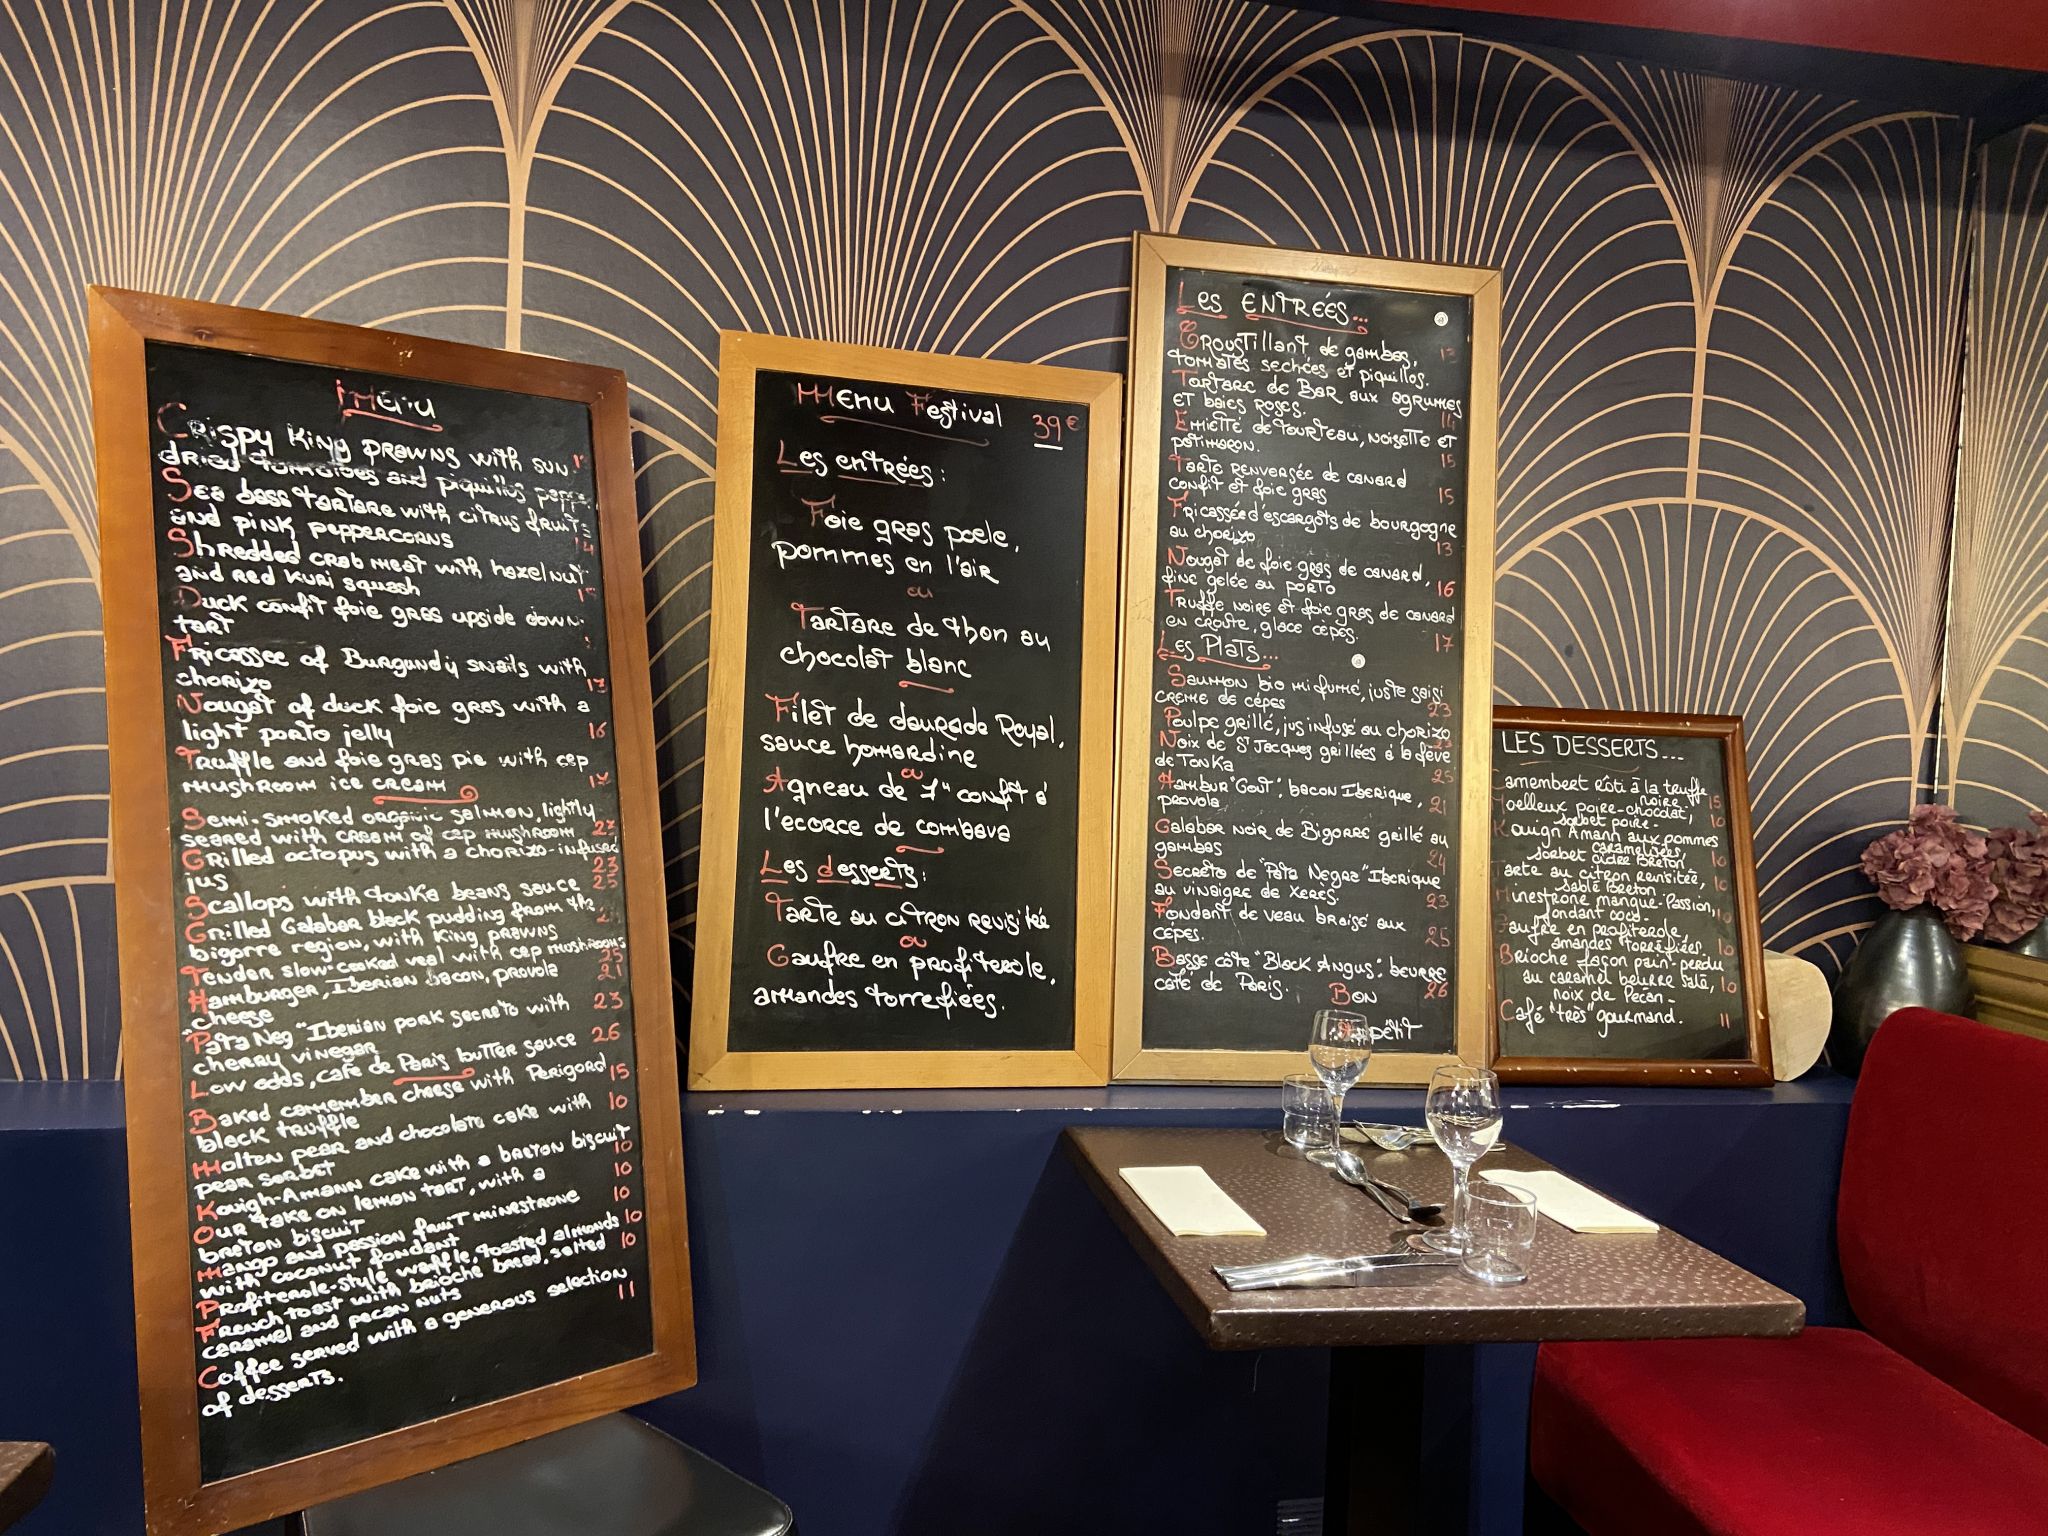 Menu
Crispy King prawns with sun
dried tomatoes and piquillos
Sea bass tartare with citrus fruits
and pink peppercorns 14
Shredded crab meat with hazelnut
and red kuri squash 15
Duck confit foie gras upside down
tart
Fricassee of Burgundy snails with
chorizo 13
Nougat of duck foie gras with a
light porto jelly 16
Truffle and foie gras pie with cep
mushroom ice cream 17
Semi-smoked organic salmon, lightly
seared with cream of cep mushroom 23
Grilled octopus with a chorizo-infused
jus 23
Scallops with tonka beans sauce 25
Grilled Galabar black pudding from the
bigorre region, with King prawns
Tender slow-cooked veal with cep mushrooms 25
Hamburger, Iberian bacon, provola 21
cheese
"Pata Neg" Iberian pork secreto with 23
cherry vinegar
Low edds, café de Paris butter sauce 26
Baked camember cheese with Perigord 15
black truffle
Molten pear and chocolate cake with 10
pear sorbet
Kouigh-Amann cake with a breton biscuit 10
Our take on lemon tart, with a 10
breton biscuit
Mango and passion fruit minestrone 10
with coconut fondant
Profiterole-style waffle, toasted almonds 10
French toast with brioche bread, salted 10
caramel and pecan nuts
Coffee served with a generous selection 11
of desserts.
Menu Festival 39€
Les entrées :
Foie gras poele,
pommes en l'air
ou
Tartare de thon au
chocolat blanc
Filet de daurade Royal,
sauce homardine
ou
Agneau de 7h confit à
l'ecorce de combava
Les desserts :
Tarte au citron revisitée
ou
Gaufre en profiterole,
amandes torrefiées.
Les ENTRÉES...
Croustillant de gambas, 13
tomates sechées et piquillos.
Tartare de Bar aux agrumes
et baies roses. 14
Emietté de tourteau, noisette et
potimaron. 15
Tarte renversée de canard
confit et foie gras 15
Fricassée d'escargots de bourgogne
au chorizo 13
Nougat de foie gras de canard,
fine gelée au porto 16
Truffe noire et foie gras de canard
en croûte, glace cèpes. 17
Les Plats...
Saumon bio mi fumé, juste saisi
creme de cépes 23
Poulpe grillé, jus infusé au chorizo 23
Noix de St Jacques grillées à la fève
de Tonka 25
Hambur "Goût", bacon Iberique, 21
provola
Galabar noir de Bigorre grillé au
gambas 24
Secreto de "Pata Negra" Iberique
au vinaigre de Xerès. 23
Fondant de veau braisé aux
cépes. 25
Basse côte "Black Angus", beurre
café de Paris. 26
Bon
Appétit
LES DESSERTS...
Camembert rôti à la truffe
noire 15
Moelleux poire-chocolat, 10
sorbet poire-
Kouign Amann aux pommes
caramelisées, 10
sorbet cidre Breton
Tarte au citron revisitée, 10
sablé Breton.
Minestrone mangue-Passion, 10
fondant coco-
Gaufre en profiterole,
amandes torréfiées. 10
Brioche façon pain-perdu
au caramel beurre salé, 10
noix de Pecan-
Café "très" gourmand. 11